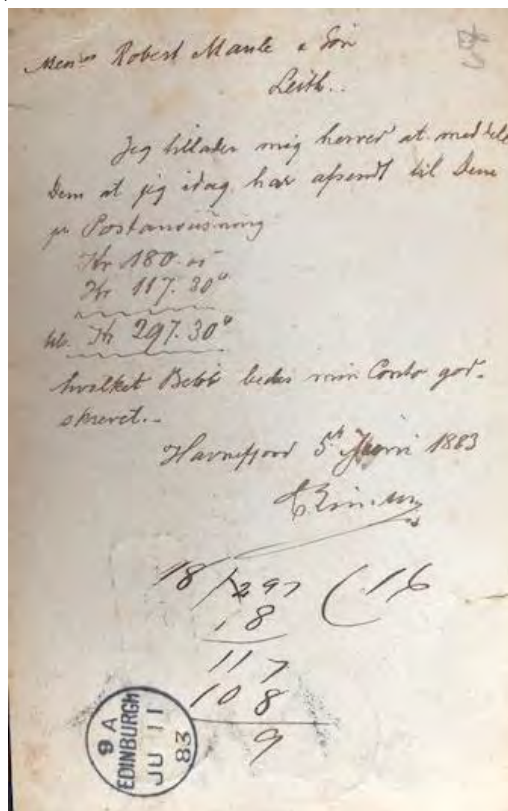 Messrs Robert Maule & Son
Leith..
Jeg tillader mig herved at meddele
Dem at jeg idag har afsendt til Dem
pr Postanvisning
Kr 180.00
Kr 117.30
Kr 297.30
hvilket Beløb bedes min Conto god-
skrevet..
Havnefjord 5th Juni 1883
18/297(16
18
117
108
9
9 A
EDINBURGH
JU 11
83